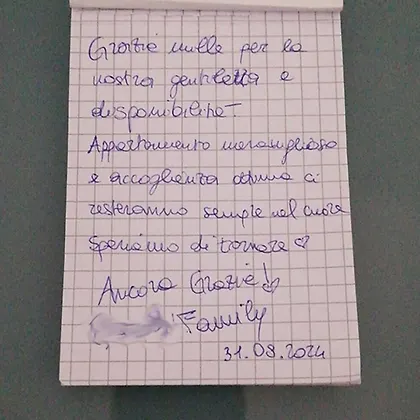 Grazie mille per la
vostra gentilezza e
disponibilità.
Appartamento meraviglioso
e accoglienza ottima ci
resteranno sempre nel cuore
Speriamo di tornare ♡
Ancora Grazie!♡
Family
31.08.2024